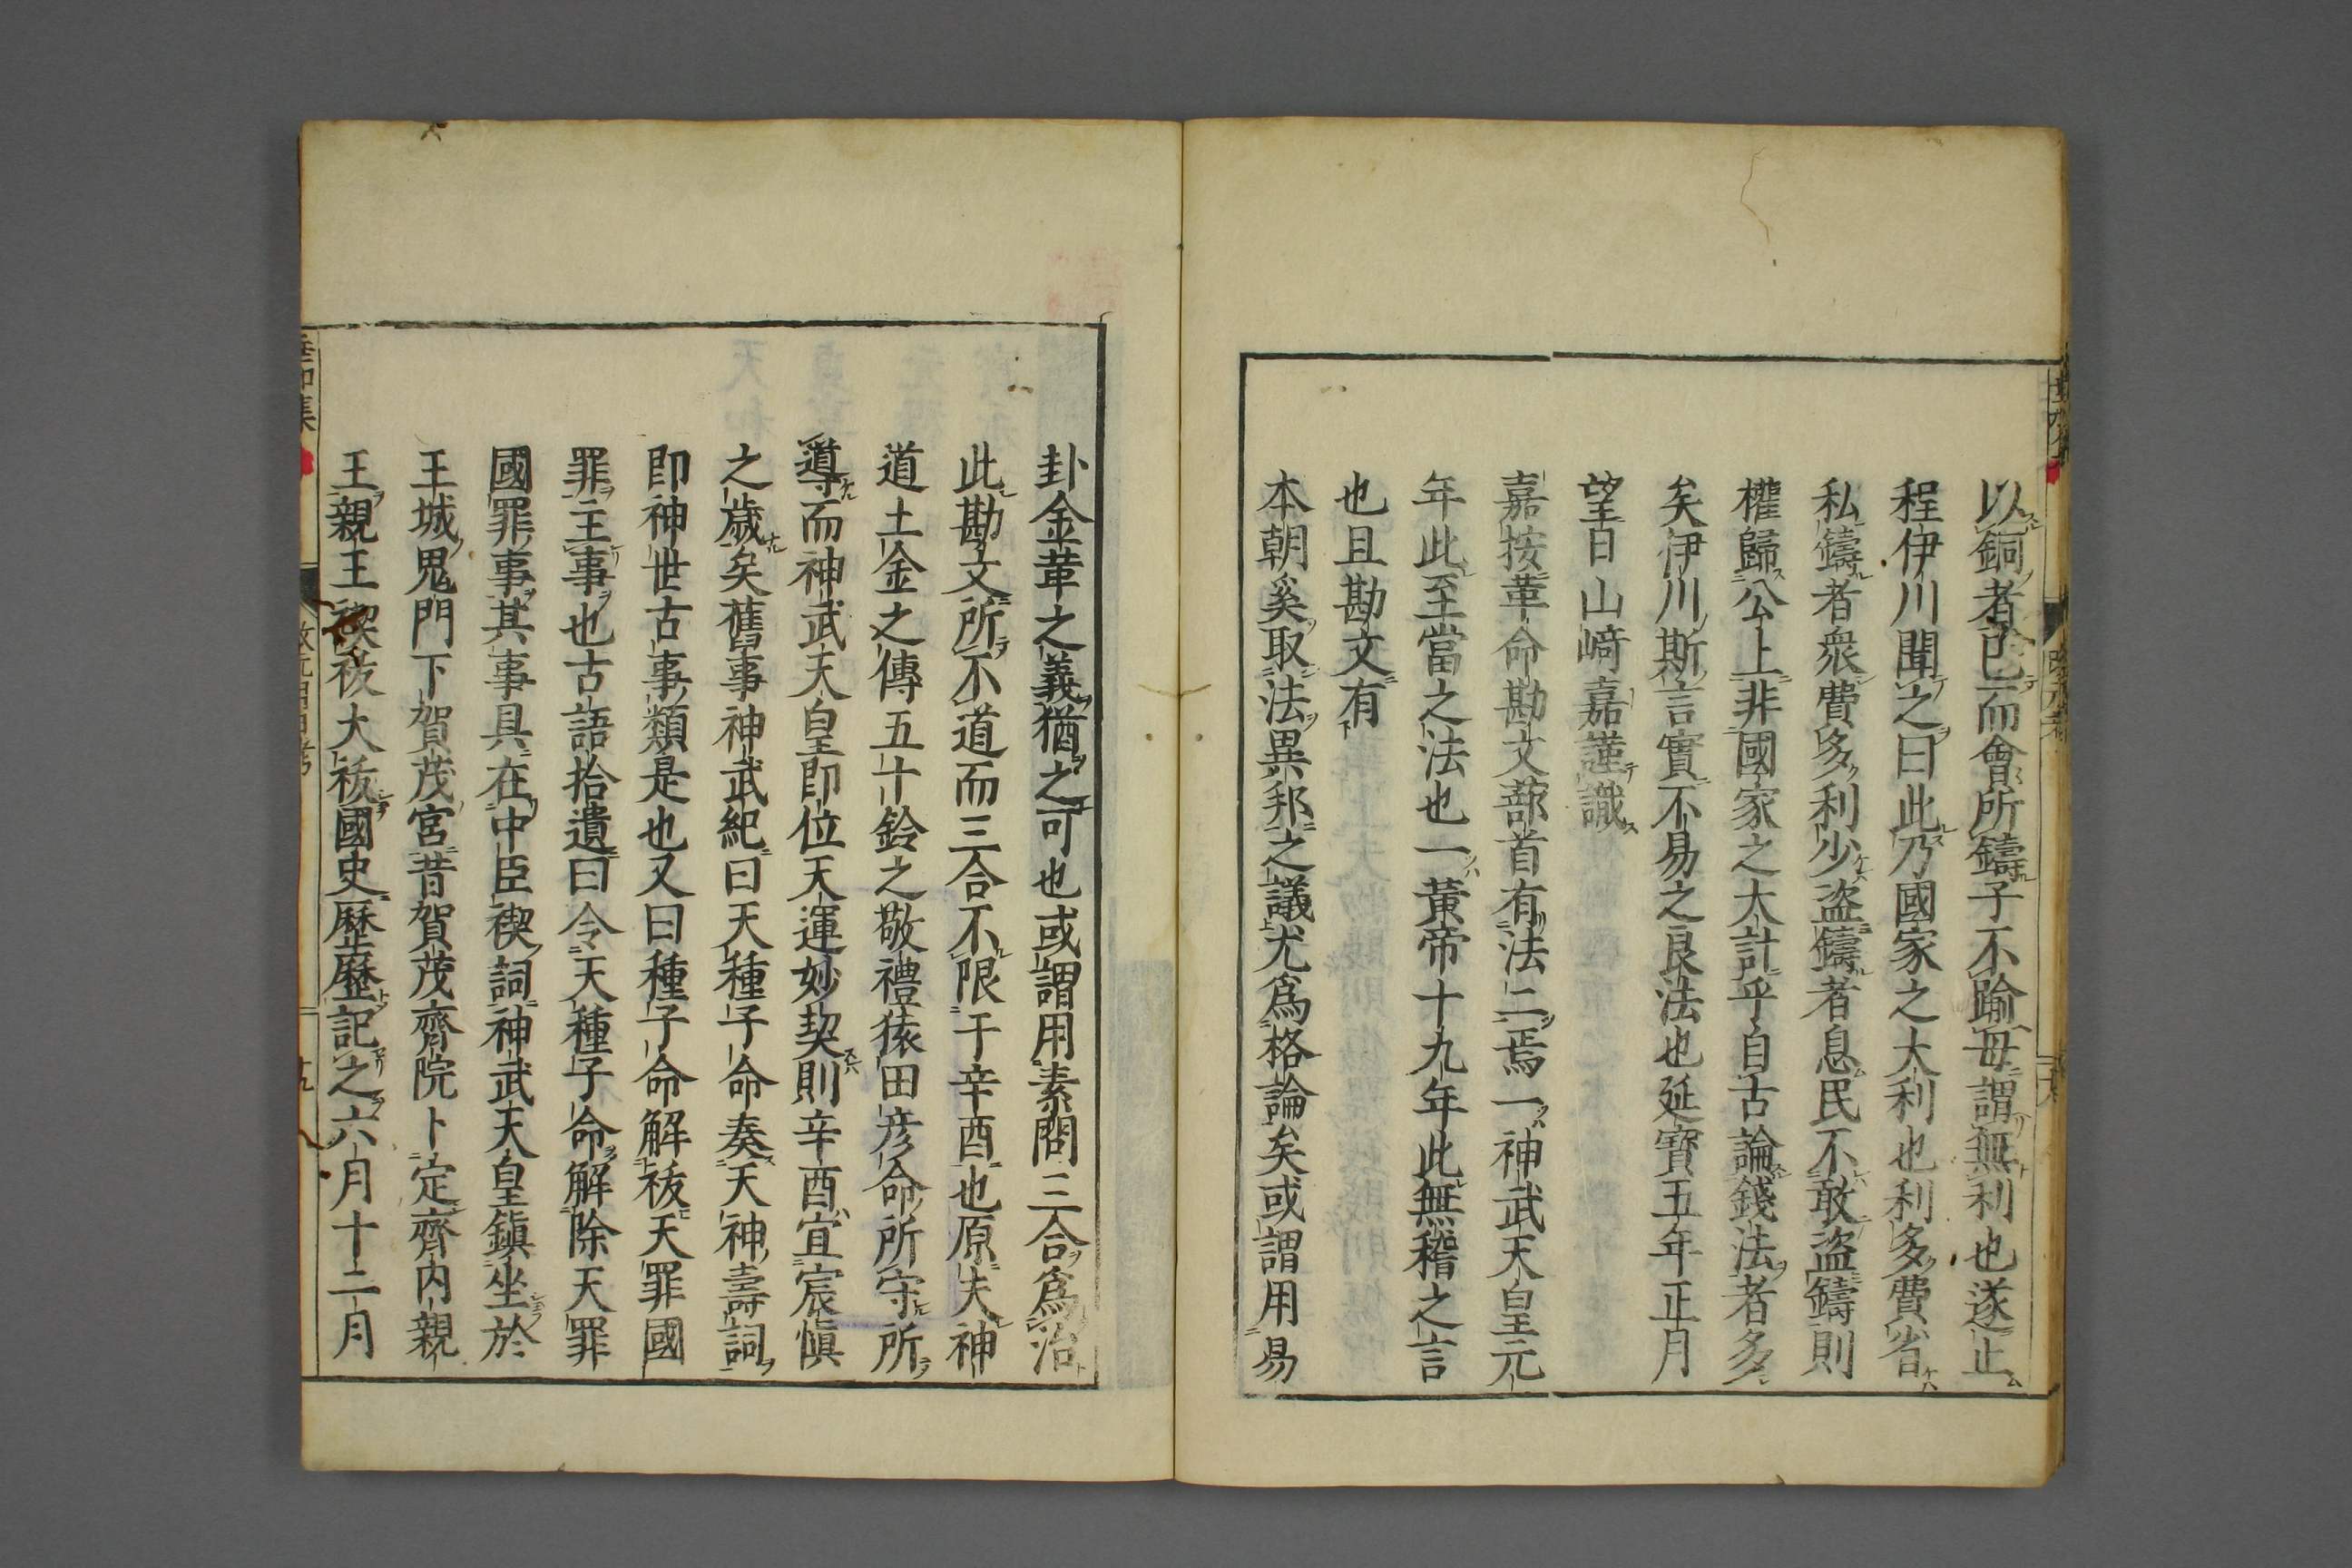 以銅者已而會所鑄子不踰毋謂無利也遂止
程伊川聞之曰此乃國家之大利也利多費省
私鑄者衆費多利少盜鑄者息民不敢盜鑄則
權歸公上非國家之大計乎自古論錢法者多
矣伊川斯言實不易之良法也延寶五年正月
望日山﨑嘉謹識
嘉按革命勘文蔀首有法二焉一神武天皇元
年此至當之法也一黃帝十九年此無稽之言
也且勘文有
本朝奚取法異邦之議尤爲格論矣或謂用易
卦金革之義猶之可也或謂用素問三合爲治
此勘文所不道而三合不限于辛酉也原夫神
道土金之傳五十鈴之敬禮猿田彦命所守所
導而神武天皇即位天運妙契則辛酉宜宸愼
之歲矣舊事神武紀曰天種子命奏天神壽詞
即神世古事類是也又曰種子命解祓天罪國
罪主事也古語拾遺曰令天種子命解除天罪
國罪事其事具在中臣禊詞神武天皇鎭坐於
王城鬼門下賀茂宮昔賀茂齊院卜定齊内親
王親王禊祓大祓國史歷歷記之六月十二月